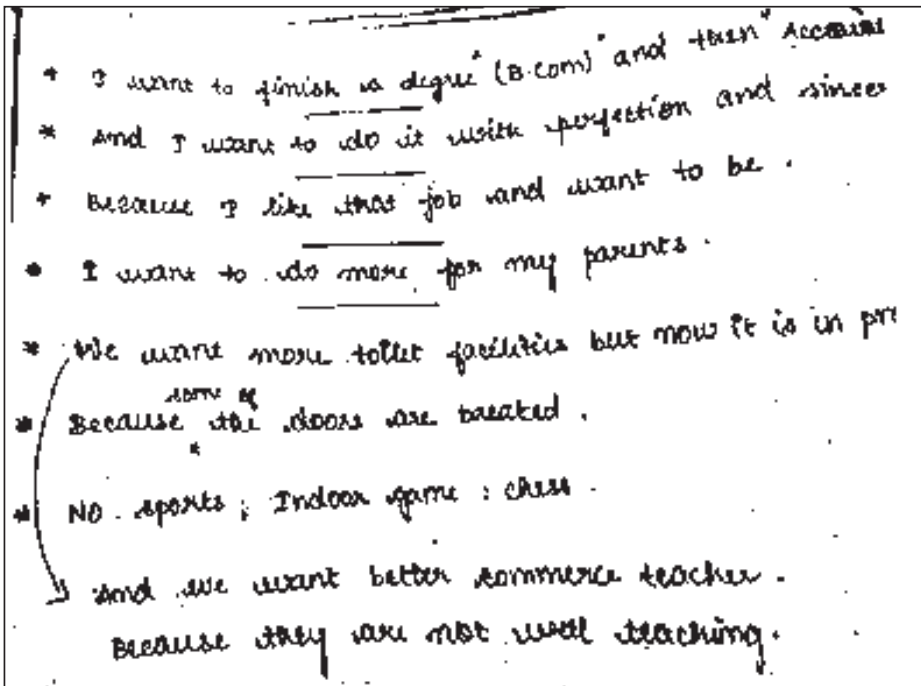 * I want to finish a degree "(B.com)" and then "Account
* And I want to do it with perfection and sincer
* Because I like that job and want to be .
* I want to do more for my parents .
* We want more toilet facilities but now it is in pr
some of
* Because the doors are breaked .
* NO sports ; Indoor game : chess .
And we want better commerce teacher .
Because they are not well teaching .